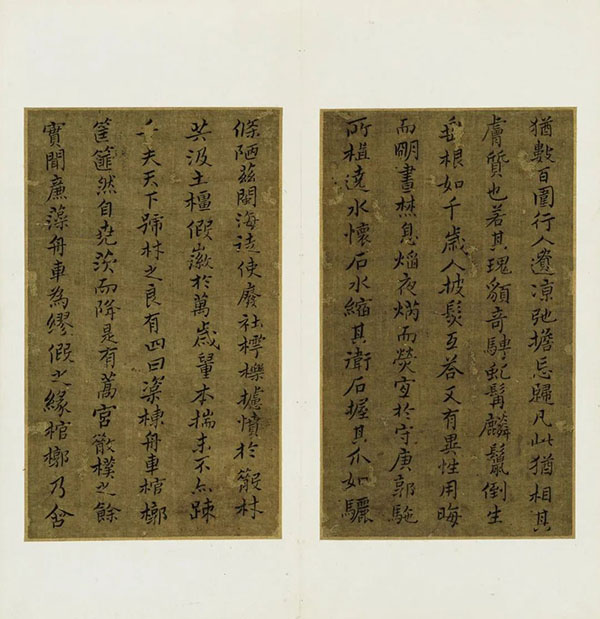 猶數百圍行人遼涼弛擔忘歸凡此猶相其
膚質也若其瑰顏奇騁虬髯麟鬣倒生
根如千歲人披髮互荅又有異性用晦
而明晝焚息焰夜爇而熒宜於守庚郭駞
所植遶水懷石水縮其衛石握其爪如驪
條陋茲閩海逴使廢社樗櫟攄憤於簸林
共汲土橿假嶽於萬歲鞏本揣末不亦踈
乎夫天下號林之良有四曰梁棟舟車棺槨
筐篚然自堯茨而降是有萬宮散樸之餘
實聞廉藻舟車為繆假之緣棺槨乃含